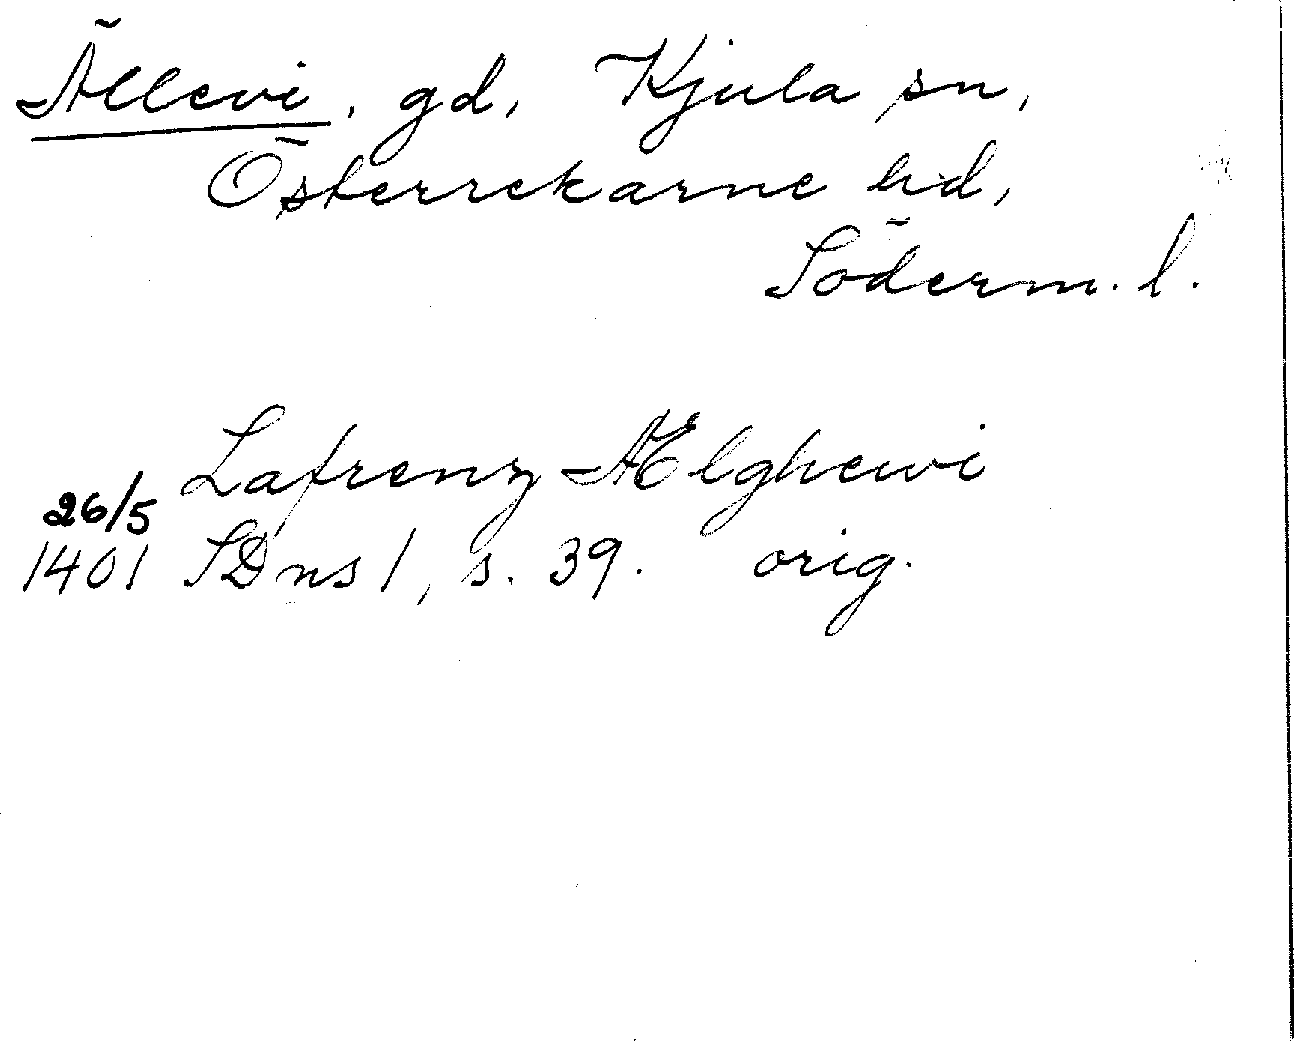 Ällevi, gd, Kjula sn,
Österrekarne hd,
Söderm. l.
Lafrenz Ælghewi
26/5
1401 SDns 1, s. 39. orig.